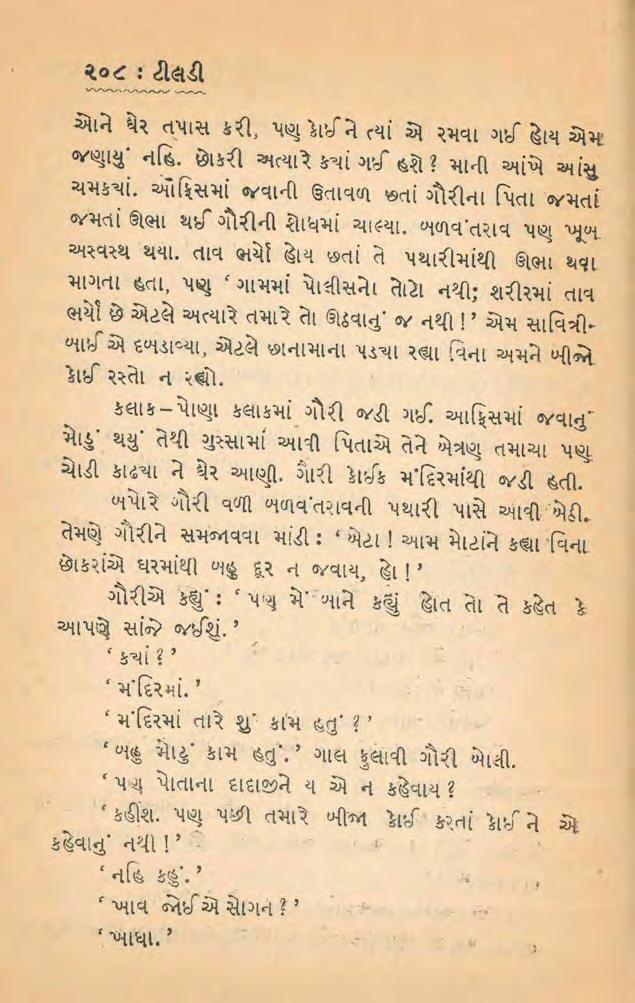 ૨૦૮ : ટીલડી
ઓને ઘેર તપાસ કરી, પણ કોઈને ત્યાં એ રમવા ગઈ હોય એમ
જણાયું નહિ. છોકરી અત્યારે ક્યાં ગઈ હશે ? માની આંખે આંસુ
ચમક્યાં. ઑફિસમાં જવાની ઉતાવળ છતાં ગૌરીના પિતા જમતાં
જમતાં ઊભા થઈ ગૌરીની શોધમાં ચાલ્યા. બળવંતરાવ પણ ખૂબ
અસ્વસ્થ થયા. તાવ ભર્યો હોય છતાં તે પથારીમાંથી ઊભા થવા
માગતા હતા, પણ ‘ ગામમાં પોલીસનો તોટો નથી; શરીરમાં તાવ
ભર્યો છે એટલે અત્યારે તમારે તો ઊઠવાનું જ નથી ! ’ એમ સાવિત્રી-
બાઈ એ દબડાવ્યા, એટલે છાનામાના પડ્યા રહ્યા વિના અમને બીજો
કોઈ રસ્તો ન રહ્યો.
કલાક – પોણા કલાકમાં ગૌરી જડી ગઈ. આફિસમાં જવાનું
મોડું થયું તેથી ગુસ્સામાં આવી પિતાએ તેને બેત્રણ તમાચા પણ
ચોડી કાઢ્યા ને ઘેર આણી. ગૌરી કોઈક મંદિરમાંથી જડી હતી.
બપોરે ગૌરી વળી બળવંતરાવની પથારી પાસે આવી બેઠી.
તેમણે ગૌરીને સમજાવવા માંડી : ‘ બેટા ! આમ મોટાંને કહ્યા વિના
છોકરાંએ ઘરમાંથી બહુ દૂર ન જવાય, હો ! ’
ગૌરીએ કહ્યું : ‘ પણ મેં બાને કહ્યું હોત તો તે કહેત કે
આપણે સાંજે જઈશું. ’
‘ ક્યાં ? ’
‘ મંદિરમાં. ’
‘ મંદિરમાં તારે શું કામ હતું ? ’
‘ બહુ મોટું કામ હતું. ’ ગાલ ફુલાવી ગૌરી બોલી.
‘ પણ પોતાના દાદાજીને ય એ ન કહેવાય ?
‘ કહીશ. પણ પછી તમારે બીજા કોઈ કરતાં કોઈ ને એ
કહેવાનું નથી ! ’
‘ નહિ કહું. ’
‘ ખાવ જોઈ એ સોગન ? ’
‘ ખાધા. ’